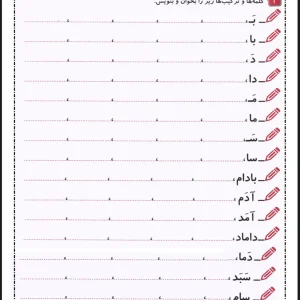 ۱ کلمه‌ها و ترکیب‌ها زیر را بخوان و بنویس.
بَـ ، ، ، ،
با ، ، ، ،
دَ ، ، ، ،
دا ، ، ، ،
مَـ ، ، ، ،
ما ، ، ، ،
سَـ ، ، ، ،
سا ، ، ، ،
بادام ، ، ، ،
آدَم ، ، ، ،
آمَد ، ، ، ،
داماد ، ، ، ،
دَما ، ، ، ،
سَبَد ، ، ، ،
سام ، ، ، ،